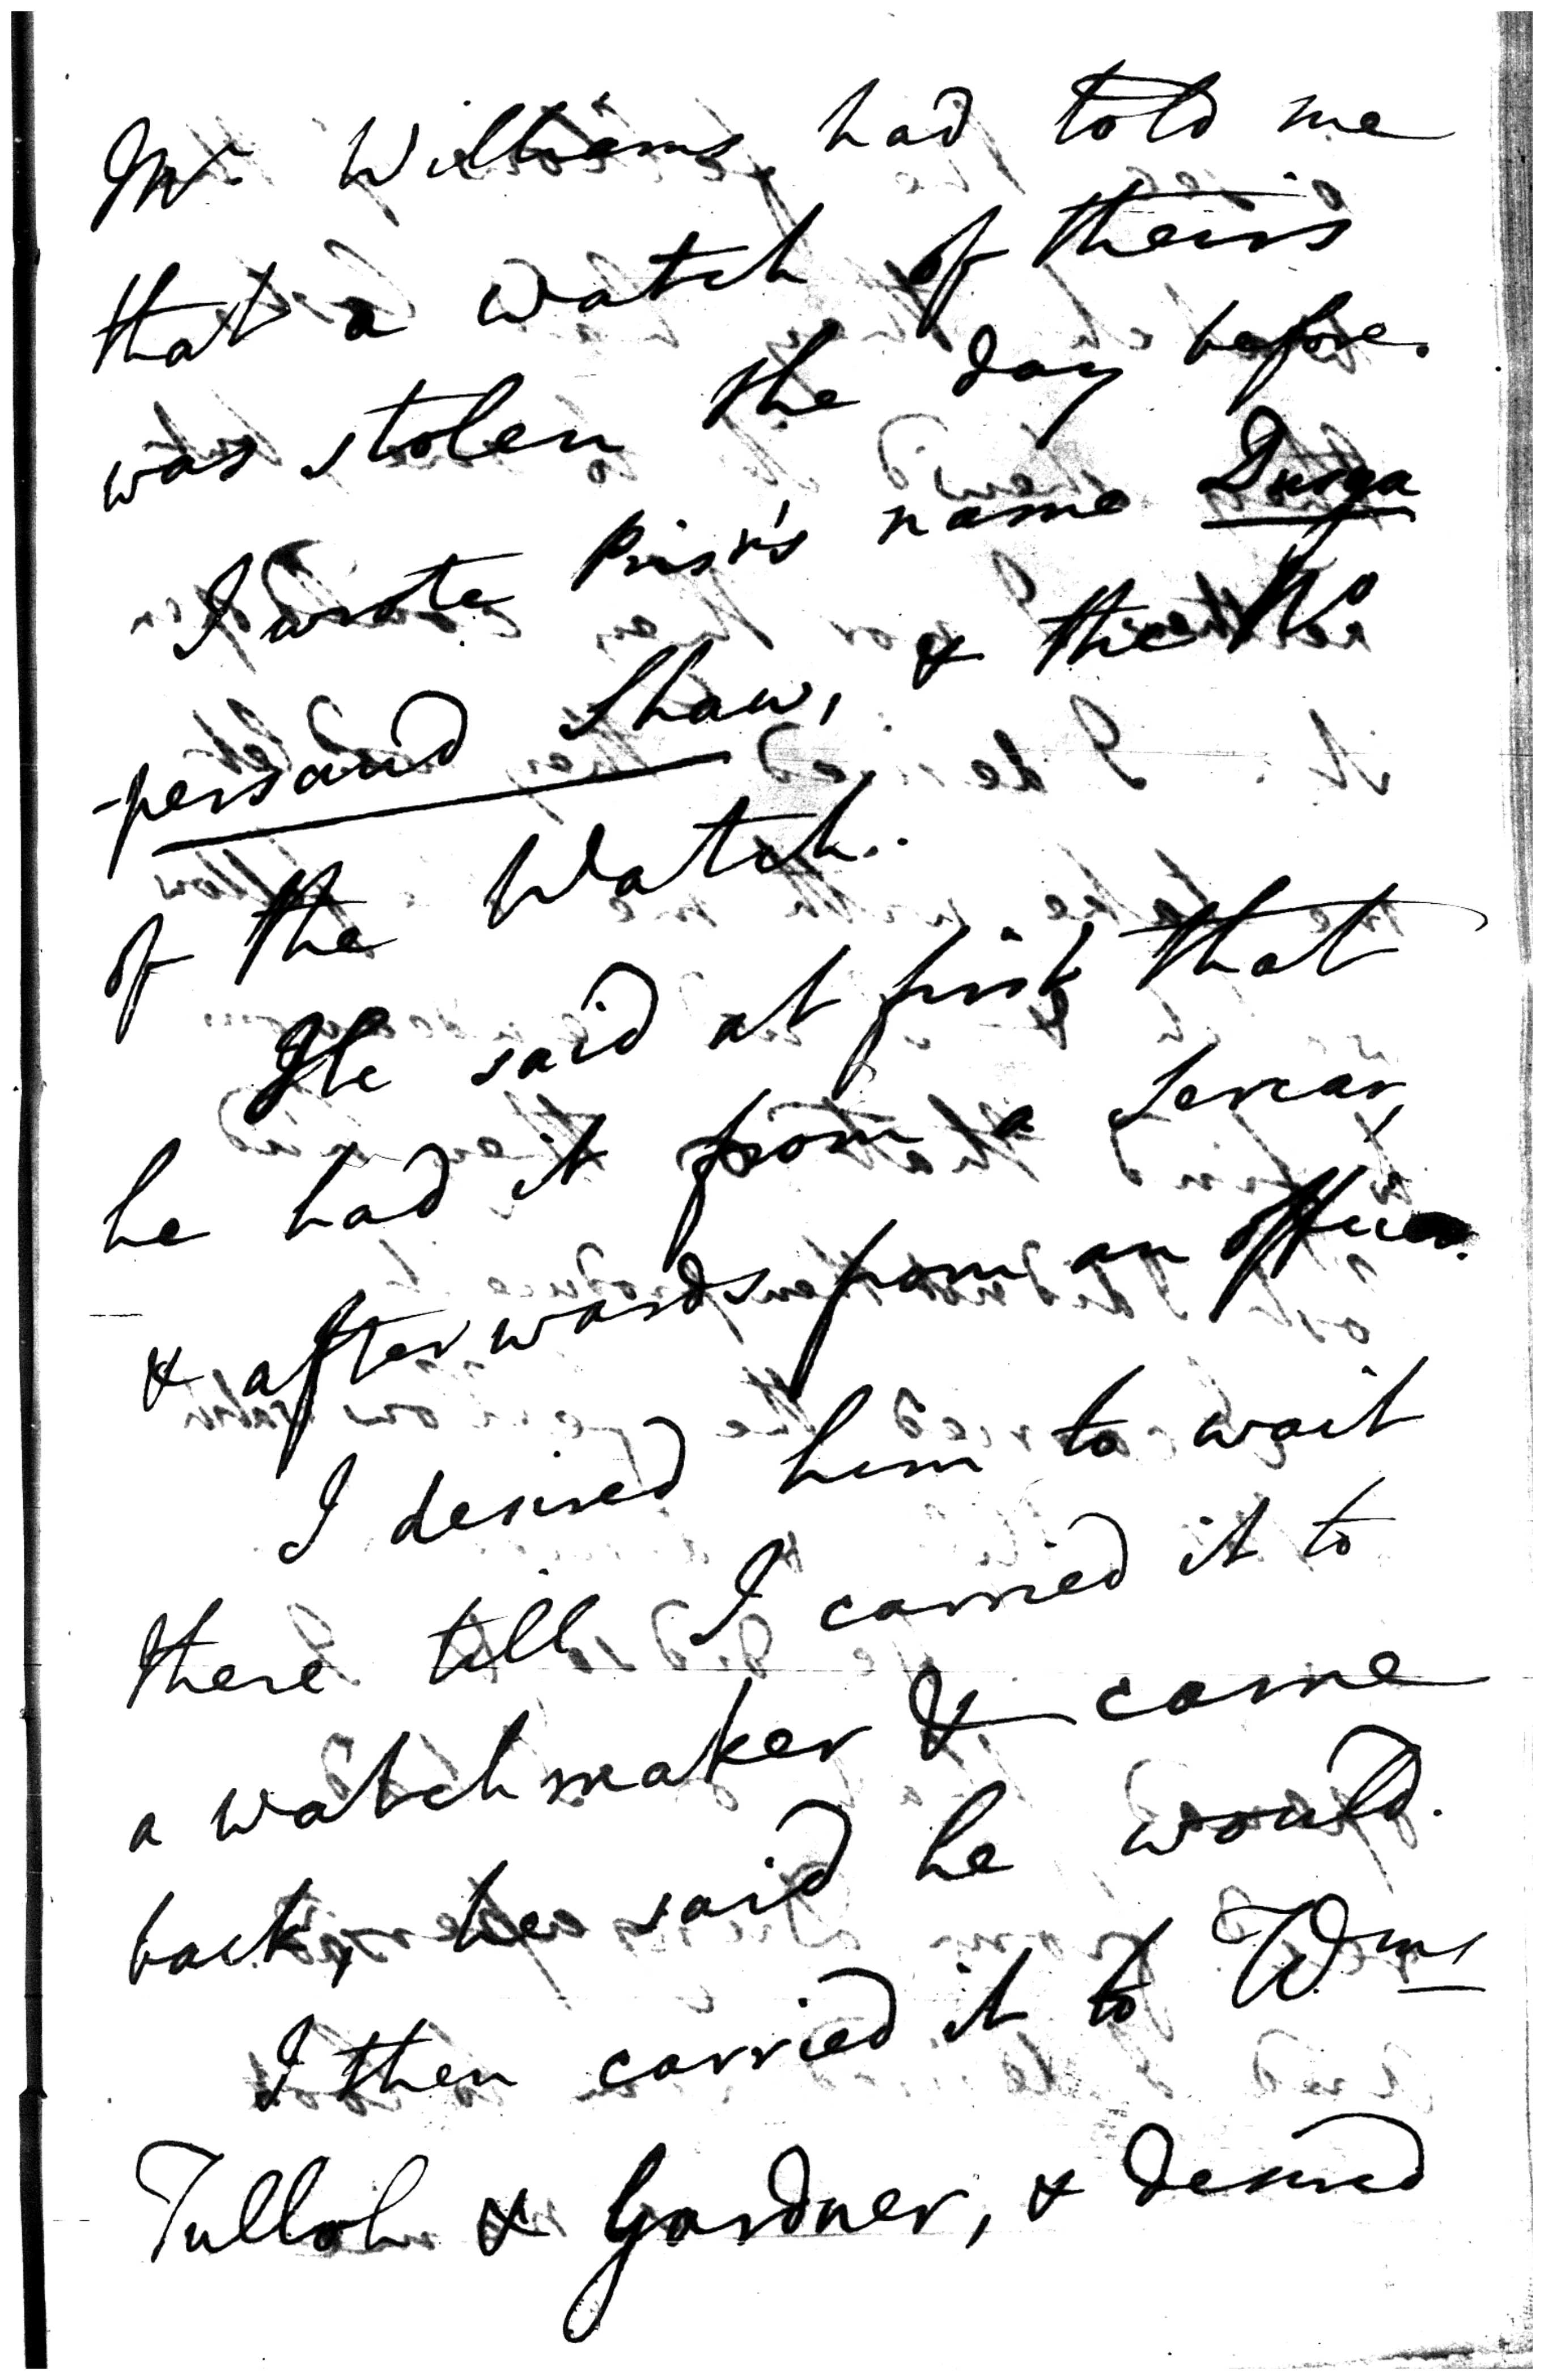 Mr Williams had told me
that a watch of theirs
was stolen the day before.
I wrote Prisr's name Durga
-persaud Shaw, & the No
of the Watch.
He said at first that
he had it from a Sercar,
& afterwards from an officer.
I desired him to wait
there till I carried it to
a watchmaker & came
back, he said he would.
I then carried it to Wms
Tulloh & Gardner, & desired